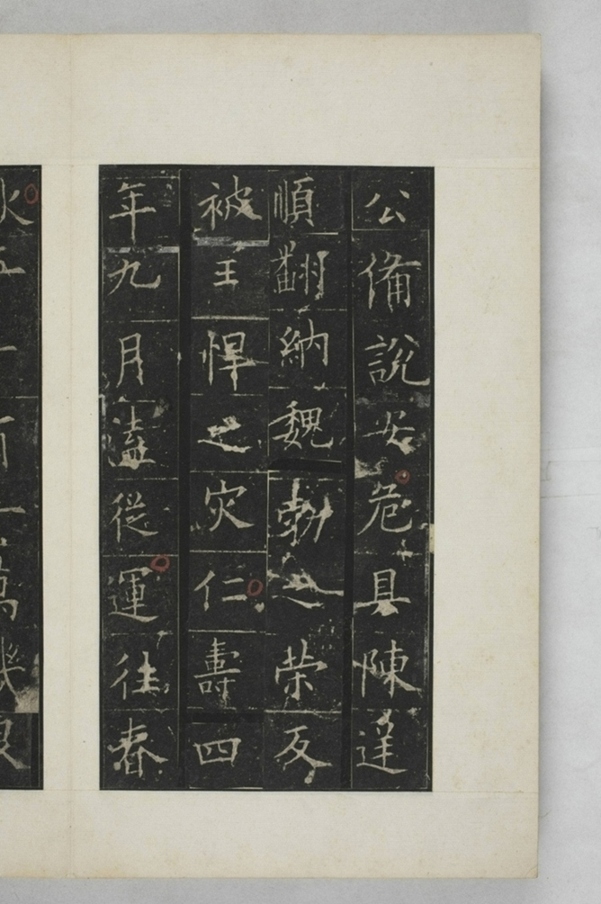 公備説安危具陳逆
順翻納魏勃之荣反
被王悍之灾仁壽四
年九月溘從運往春